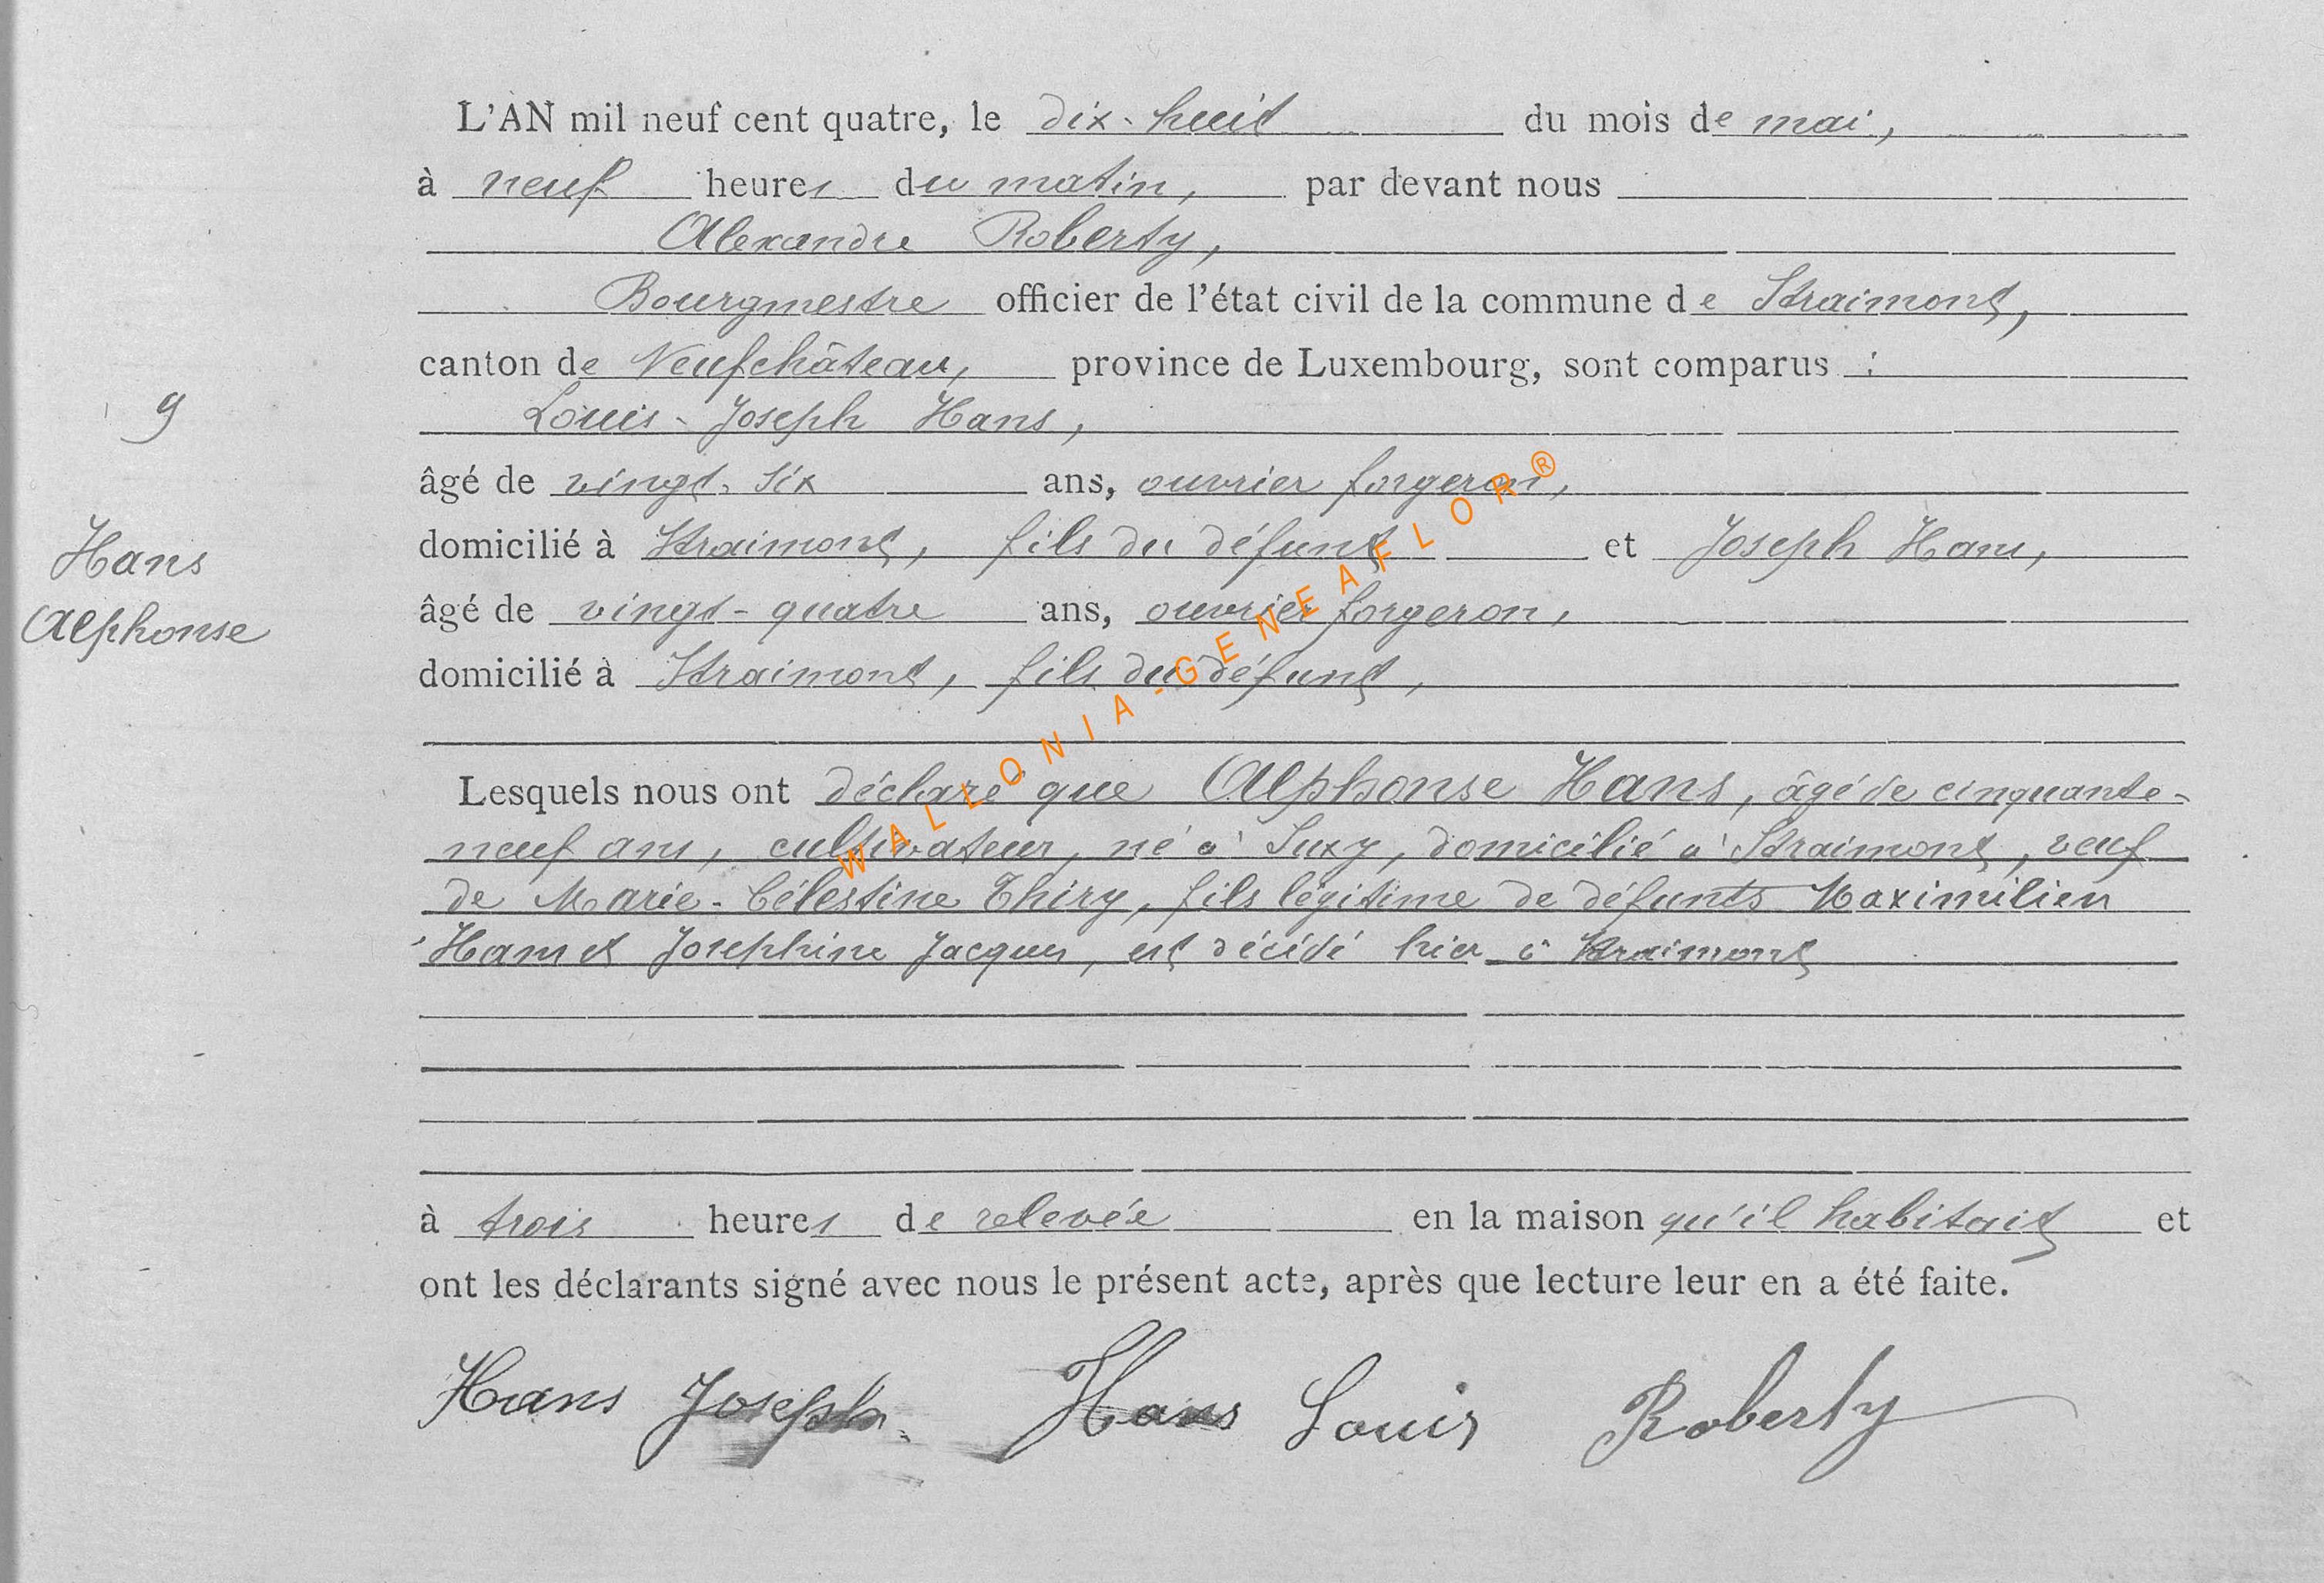 L'AN mil neuf cent quatre, le dix-huit du mois de mai,
à neuf heures du matin, par devant nous
Alexandre Roberty,
Bourgmestre officier de l'état civil de la commune de Straimont,
canton de Neufchâteau, province de Luxembourg, sont comparus :
9
Louis-Joseph Hans,
âgé de vingt-six ans, ouvrier forgeron,
Hans
domicilié à Straimont, fils du défunt et Joseph Hans,
Alphonse
âgé de vingt-quatre ans, ouvrier forgeron,
domicilié à Straimont, fils du défunt,
WALLONIA-GENEAFLOR®
Lesquels nous ont déclaré que Alphonse Hans, âgé de cinquante-
neuf ans, cultivateur, né à Suxy, domicilié à Straimont, veuf
de Marie-Célestine Thiry, fils légitime de défunts Maximilien
Hans et Josephine Jacques, est décédé hier à Straimont
à trois heures de relevée en la maison qu'il habitait et
ont les déclarants signé avec nous le présent acte, après que lecture leur en a été faite.
Hans Joseph. Hans Louis Roberty